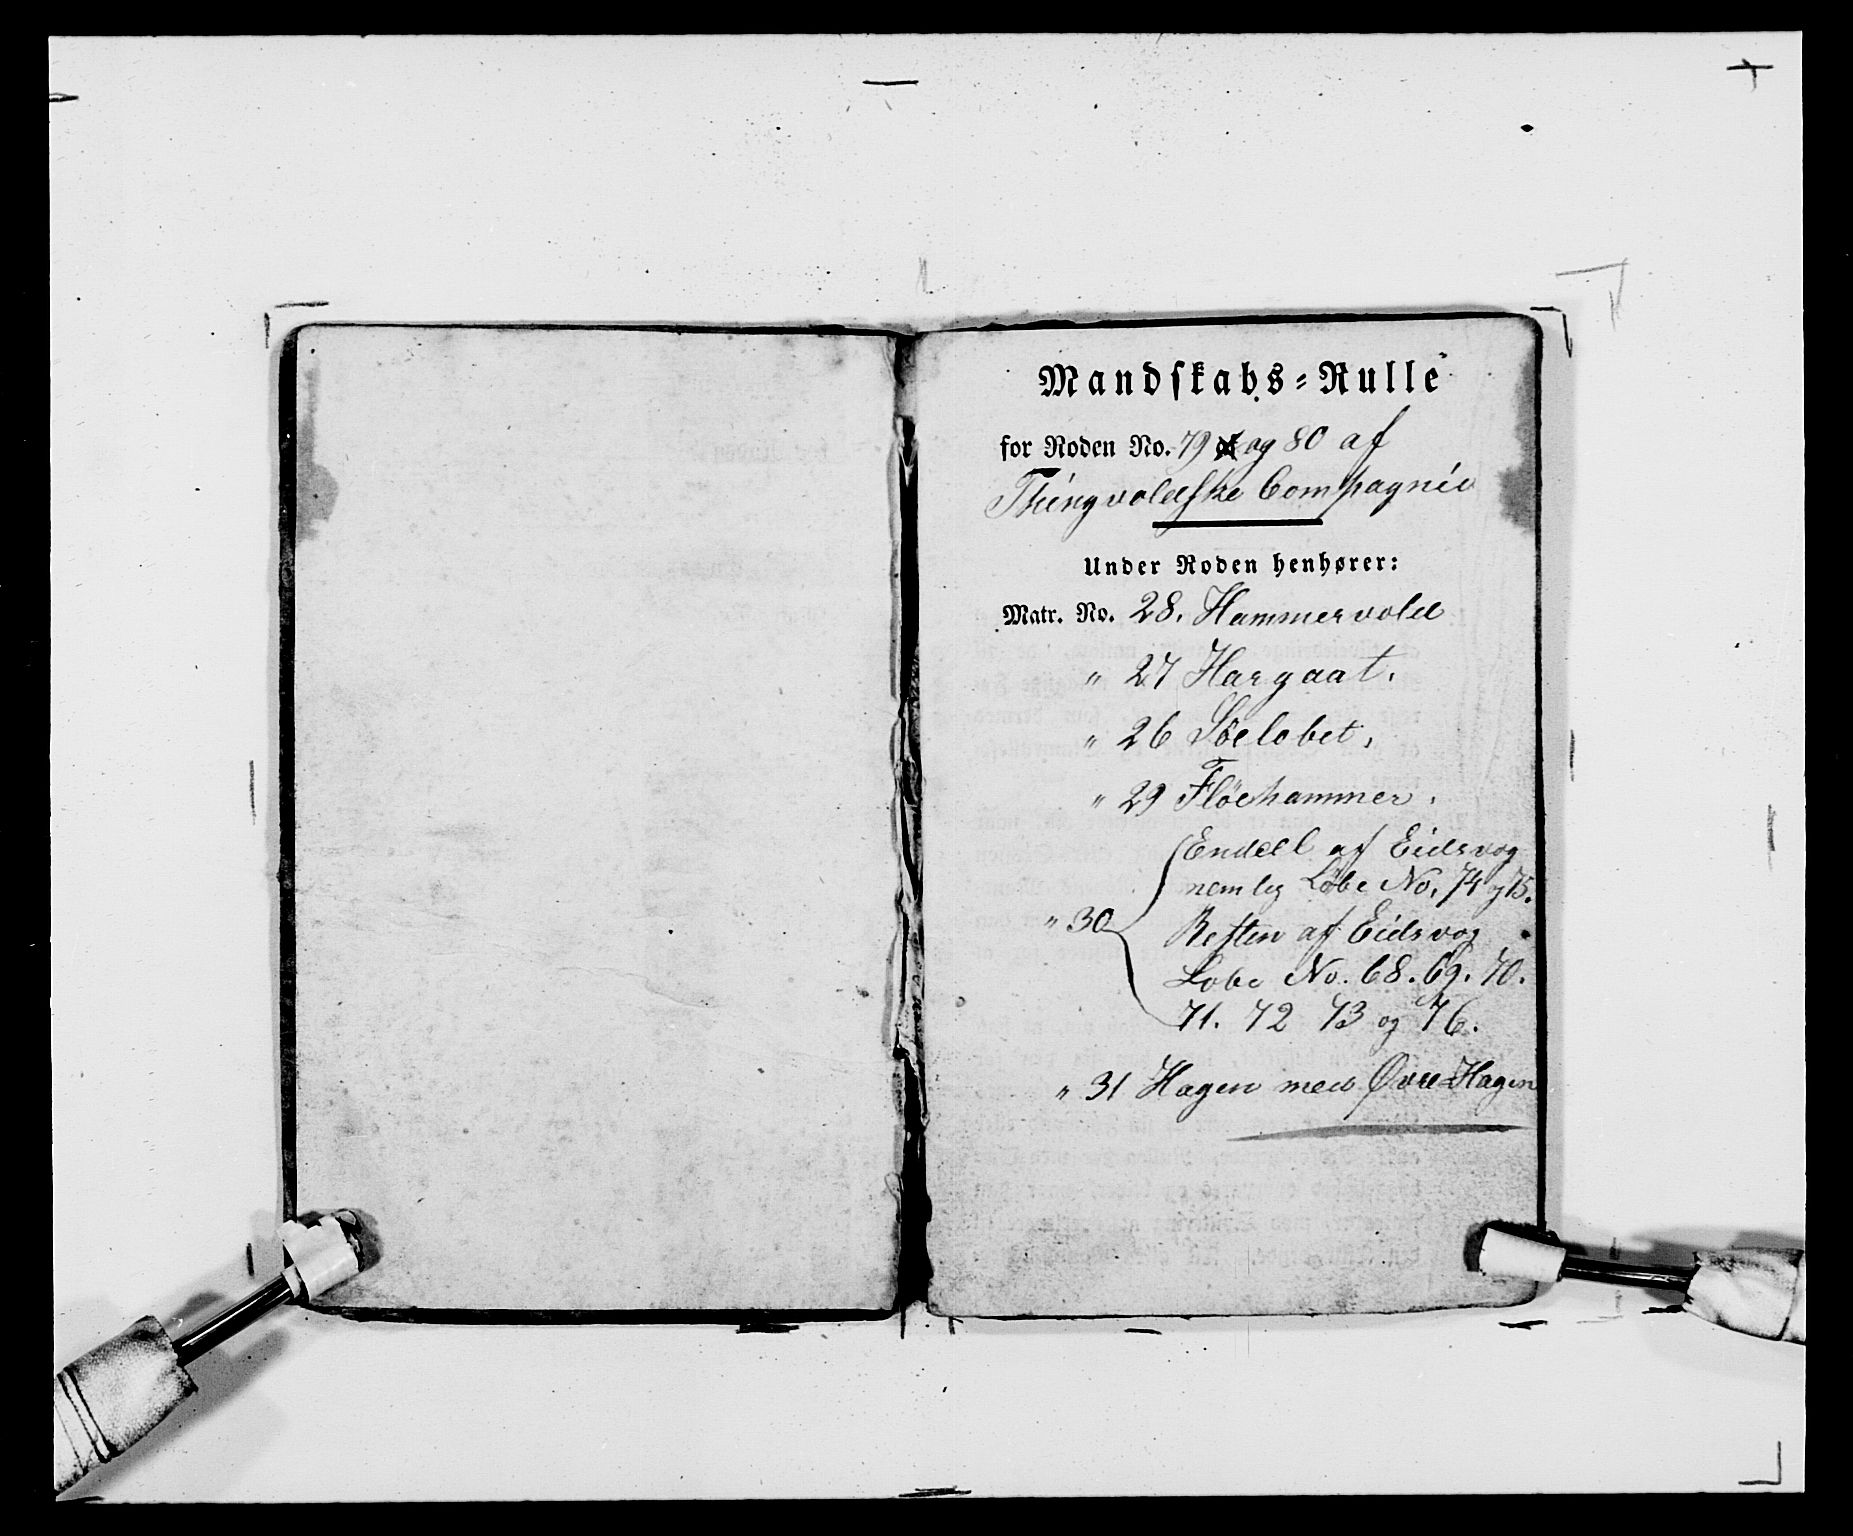 Mandskabs-Rulle
for Roden No. 79 og 80 af
Thingvoldske Compagnie
Under Roden henhører:
Matr. No. 28. Hammervold
" 27 Hargaat.
" 26 Söelobet,
" 29 Flöehammer.
Endeel af Eidsvog
nemlig Löbe No. 74 og 75.
" 30
Resten af Eidsvog
Lobe No. 68. 69. 70.
71. 72 73 og 76.
" 31 Hagen med Øvre Hagen